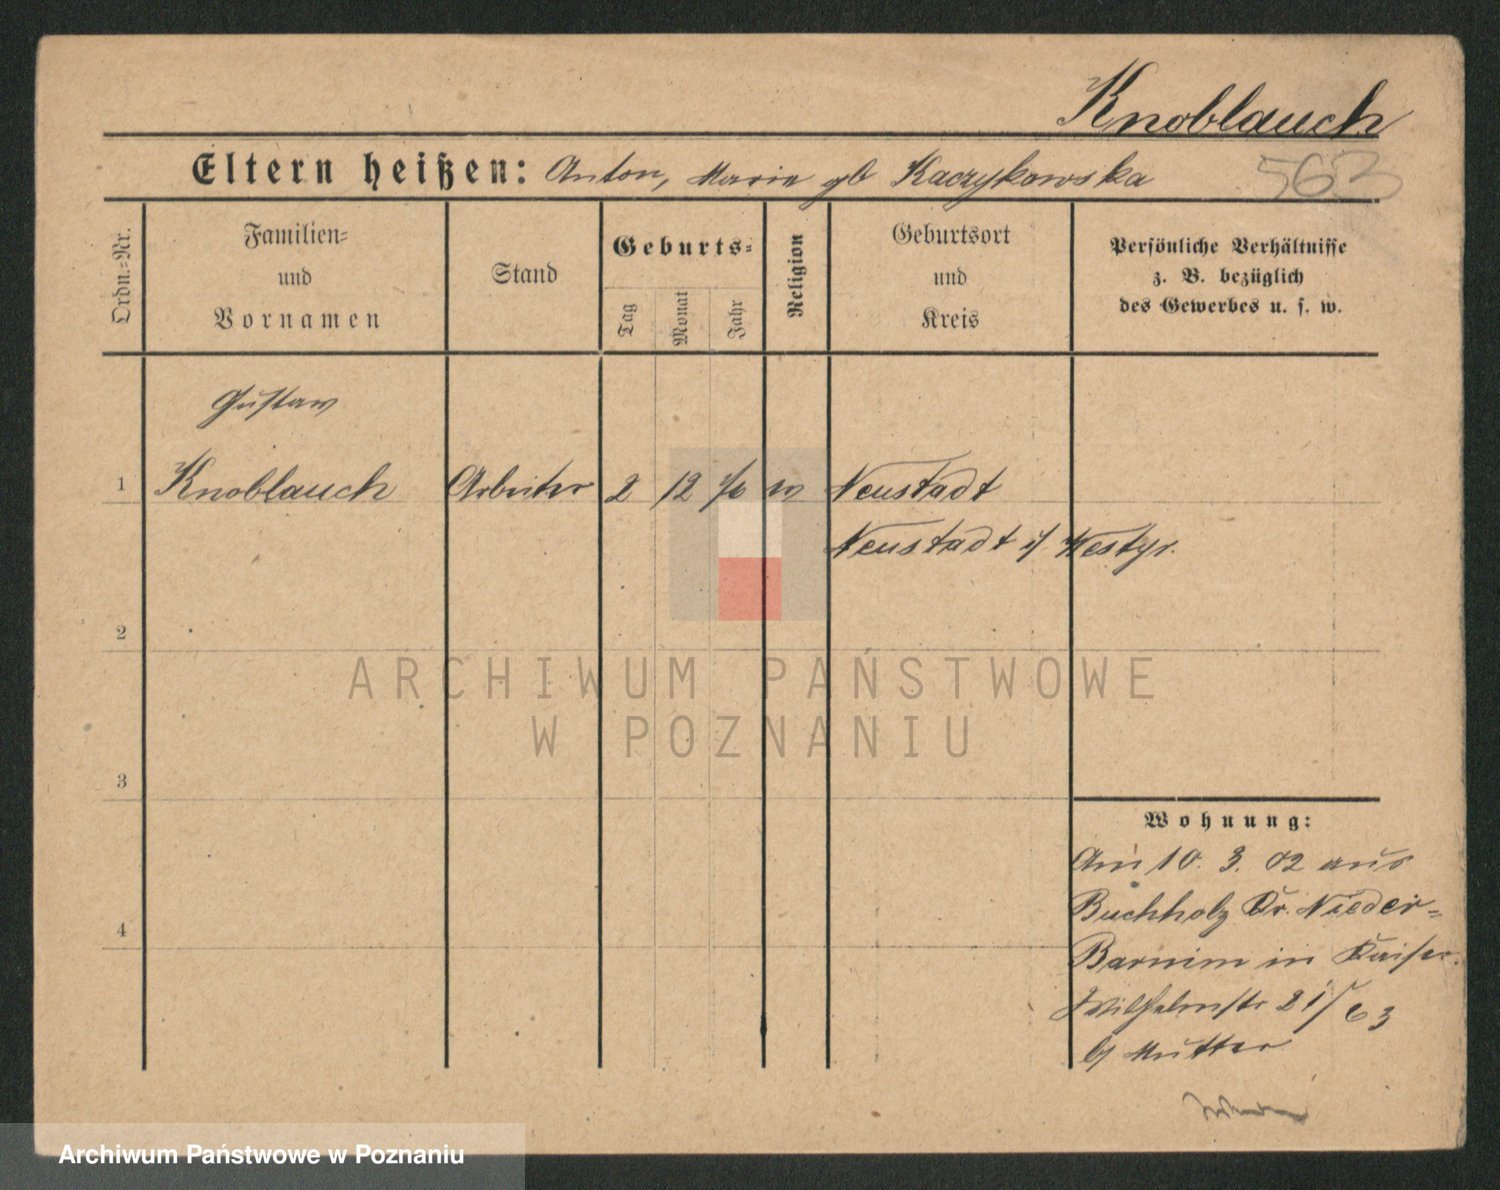 Knoblauch
Eltern heißen: Anton, Marie gb Kaczykowska 563
Ordn.=Nr.
Familien=
und
Vornamen
Stand
Geburts=
Tag
Monat
Jahr
Religion
Geburtsort
und
Kreis
Persönliche Verhältnisse
z. B. bezüglich
des Gewerbes u. s. w.
Gustaw
1 Knoblauch Arbeiter 2 12 Neustadt
Neustadt i/ Westpr.
2
3
4
Wohnung:
Am 10. 3. 02 aus
Buchholz Kr. Nieder=
Barnim in Kaiser
Wilhelmstr 21/63
b/ Mutter
ARCHIWUM PAŃSTWOWE
W POZNANIU
Archiwum Państwowe w Poznaniu